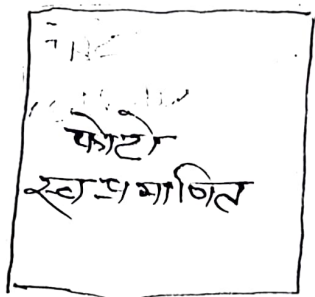 फोटो
स्वप्रमाणित